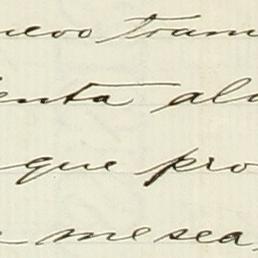 uevo tram
enta al
que pro
mesea